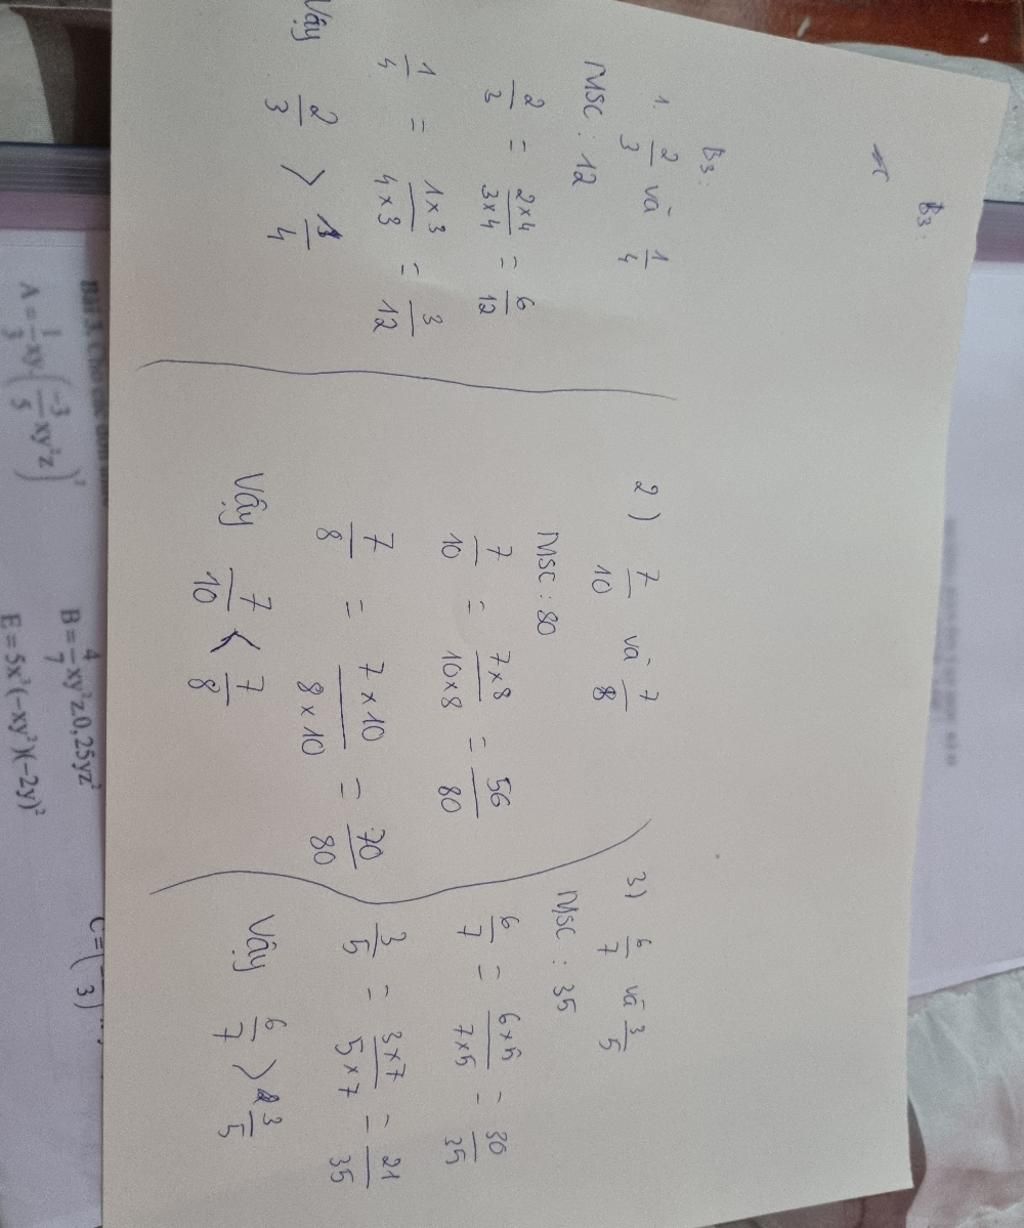 B3:
B3:
1. 2/3 và 1/4
MSC: 12
2/3 = 2×4/3×4 = 6/12
1/4 = 1×3/4×3 = 3/12
Vậy 2/3 > 1/4
2) 7/10 và 7/8
MSC: 80
7/10 = 7×8/10×8 = 56/80
7/8 = 7×10/8×10 = 70/80
Vậy 7/10 < 7/8
3) 6/7 và 3/5
MSC: 35
6/7 = 6×5/7×5 = 30/35
3/5 = 3×7/5×7 = 21/35
Vậy 6/7 > 3/5
Bài 3. Cho các đơn
A = 1/3 xy·(-3/5 xy²z)²
B = 4/7 xy²z.0,25yz²
E = 5x³(−xy²)(−2y)²